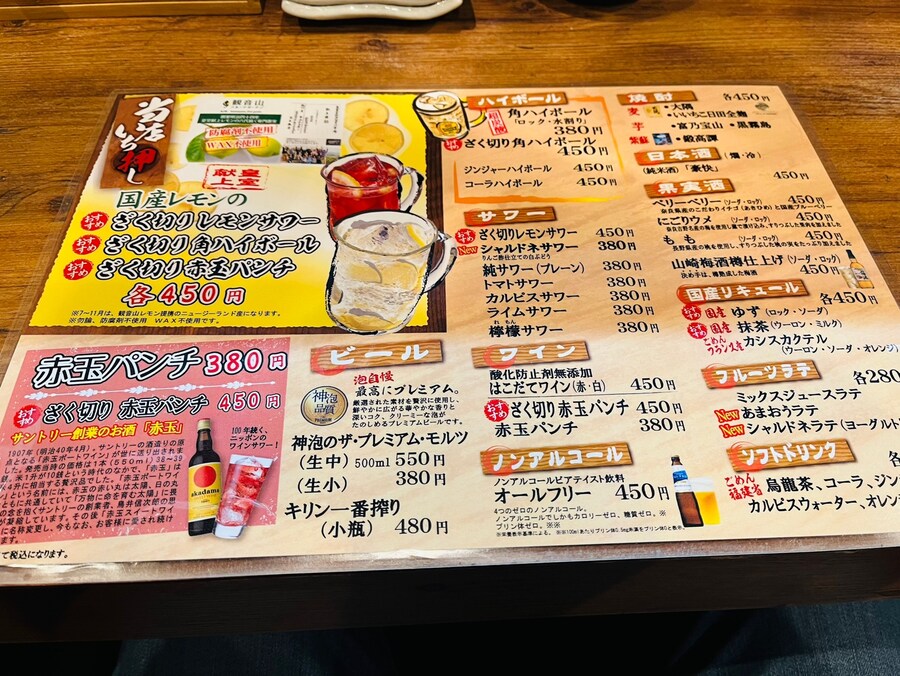 当店いち押し
観音山
防腐剤不使用
WAX不使用
皇室献上
国産レモンの
おすすめ ざく切りレモンサワー
おすすめ ざく切り角ハイボール
おすすめ ざく切り赤玉パンチ
各450円
※7～11月は、観音山レモン提携のニュージーランド産になります。
※勿論、防腐剤不使用 WAX不使用です。
赤玉パンチ 380円
おすすめ ざく切り 赤玉パンチ 450円
サントリー創業のお酒「赤玉」
100年続く、
ニッポンの
ワインサワー!
akadama
て税込になります。
ビール
泡自慢
最高にプレミアム。
神泡品質
厳選された素材を贅沢に使用し、
鮮やかに広がる華やかな香りと
深いコク、クリーミーな泡が
たのしめるプレミアムビール。
神泡のザ・プレミアム・モルツ
(生中) 500ml 550円
(生小) 380円
キリン一番搾り
(小瓶) 480円
ハイボール
角ハイボール
「ロック・水割り」
380円
おすすめ ざく切り角ハイボール
450円
ジンジャーハイボール 450円
コーラハイボール 450円
サワー
おすすめ ざく切りレモンサワー 450円
New シャルドネサワー 380円
りんご酢仕立ての白ぶどう
純サワー(プレーン) 380円
トマトサワー 380円
カルピスサワー 380円
ライムサワー 380円
檸檬サワー 380円
ワイン
酸化防止剤無添加
はこだてワイン(赤・白) 450円
おすすめ ざく切り赤玉パンチ 450円
赤玉パンチ 380円
ノンアルコール
ノンアルコールビアテイスト飲料
オールフリー 450円
4つのゼロのノンアルコール。
ノンアルコールでしかもカロリーゼロ。糖質ゼロ。※
プリン体ゼロ。※
焼酎 各450円
麦 ・大隅
・いいちこ日田全麹
芋 ・富乃宝山 ・黒霧島
紫蘇 ・鍛高譚
日本酒 (燗・冷)
(純米酒)「豪快」 450円
果実酒
ベリーベリー(ソーダ・ロック) 450円
奈良県産のこだわりイチゴ(あきひめ)と国産ブルーベリー
にごりウメ (ソーダ・ロック) 450円
もも (ソーダ・ロック) 450円
山崎梅酒樽仕上げ(ソーダ・ロック) 450円
決め手は、樽熟成した梅酒
国産リキュール 各450円
おすすめ 国産 ゆず (ロック・ソーダ)
おすすめ 国産 抹茶 (ウーロン・ミルク)
カシスカクテル
(ウーロン・ソーダ・オレンジ)
フルーツラテ 各280
ミックスジュースラテ
New あまおうラテ
New シャルドネラテ(ヨーグルト
ソフトドリンク 各
烏龍茶、コーラ、ジン
カルピスウォーター、オレン